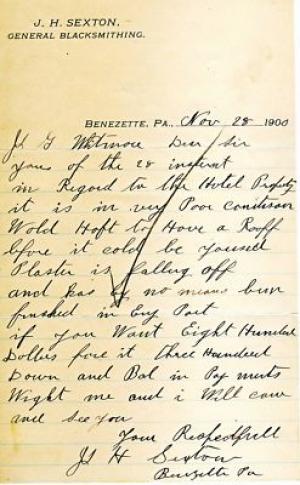 J. H. SEXTON,
GENERAL BLACKSMITHING.
BENEZETTE, PA., Nov 28 1900
J G Whitmore Dear Sir
yours of the 28 insterent
in Regard to the Hotel Property
it is in very Poor condision
Wold Haft to Have a Rooff
bfore it cold be yoused
Plaster is falling off
and Has by no means bun
finshed in Eny Part
if you Want Eight Hundred
Dollers fore it three Hundred
Down and Bal in Payments
Wight me and i Will come
and see you
Your Respectfull
J H Sexton
Benezette Pa